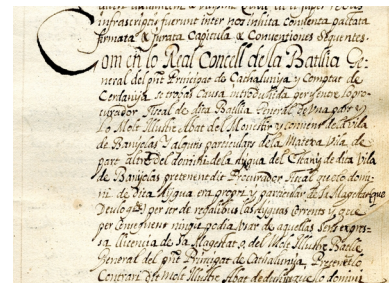 infrascripto fuerunt inter nos inhita conventa pactata
firmata & jurata Capitula & Conventiones sequentes.
Com en lo Real Concell de la Batllia Ge-
neral del pñt Principat de Cathalunya, y Comptat de
Cerdanya se trobás causa introduhida per
curador fiscal de dita Batllia General de una part y
lo Molt Illustre Abat del Monestir y convent de la vila
de Banyolas y alguns particulars de la Matexa vila de
part altre del domini de la aygua del Estany de dita vila
de Banyolas pretenent dit Procurador fiscal que lo domi-
ni de dita aygua era propri y particular de Sa Magestat que
Deu per ser de regalias las ayguas corrents y que
per consequent ningu podia usar de aquellas sens expres-
sa llicencia de Sa Magestat o del Molt Illustre Batlle
General del pñt Principat de Cathalunya, Pretenent lo
Contrari dit Molt Illustre Abat de que lo domini